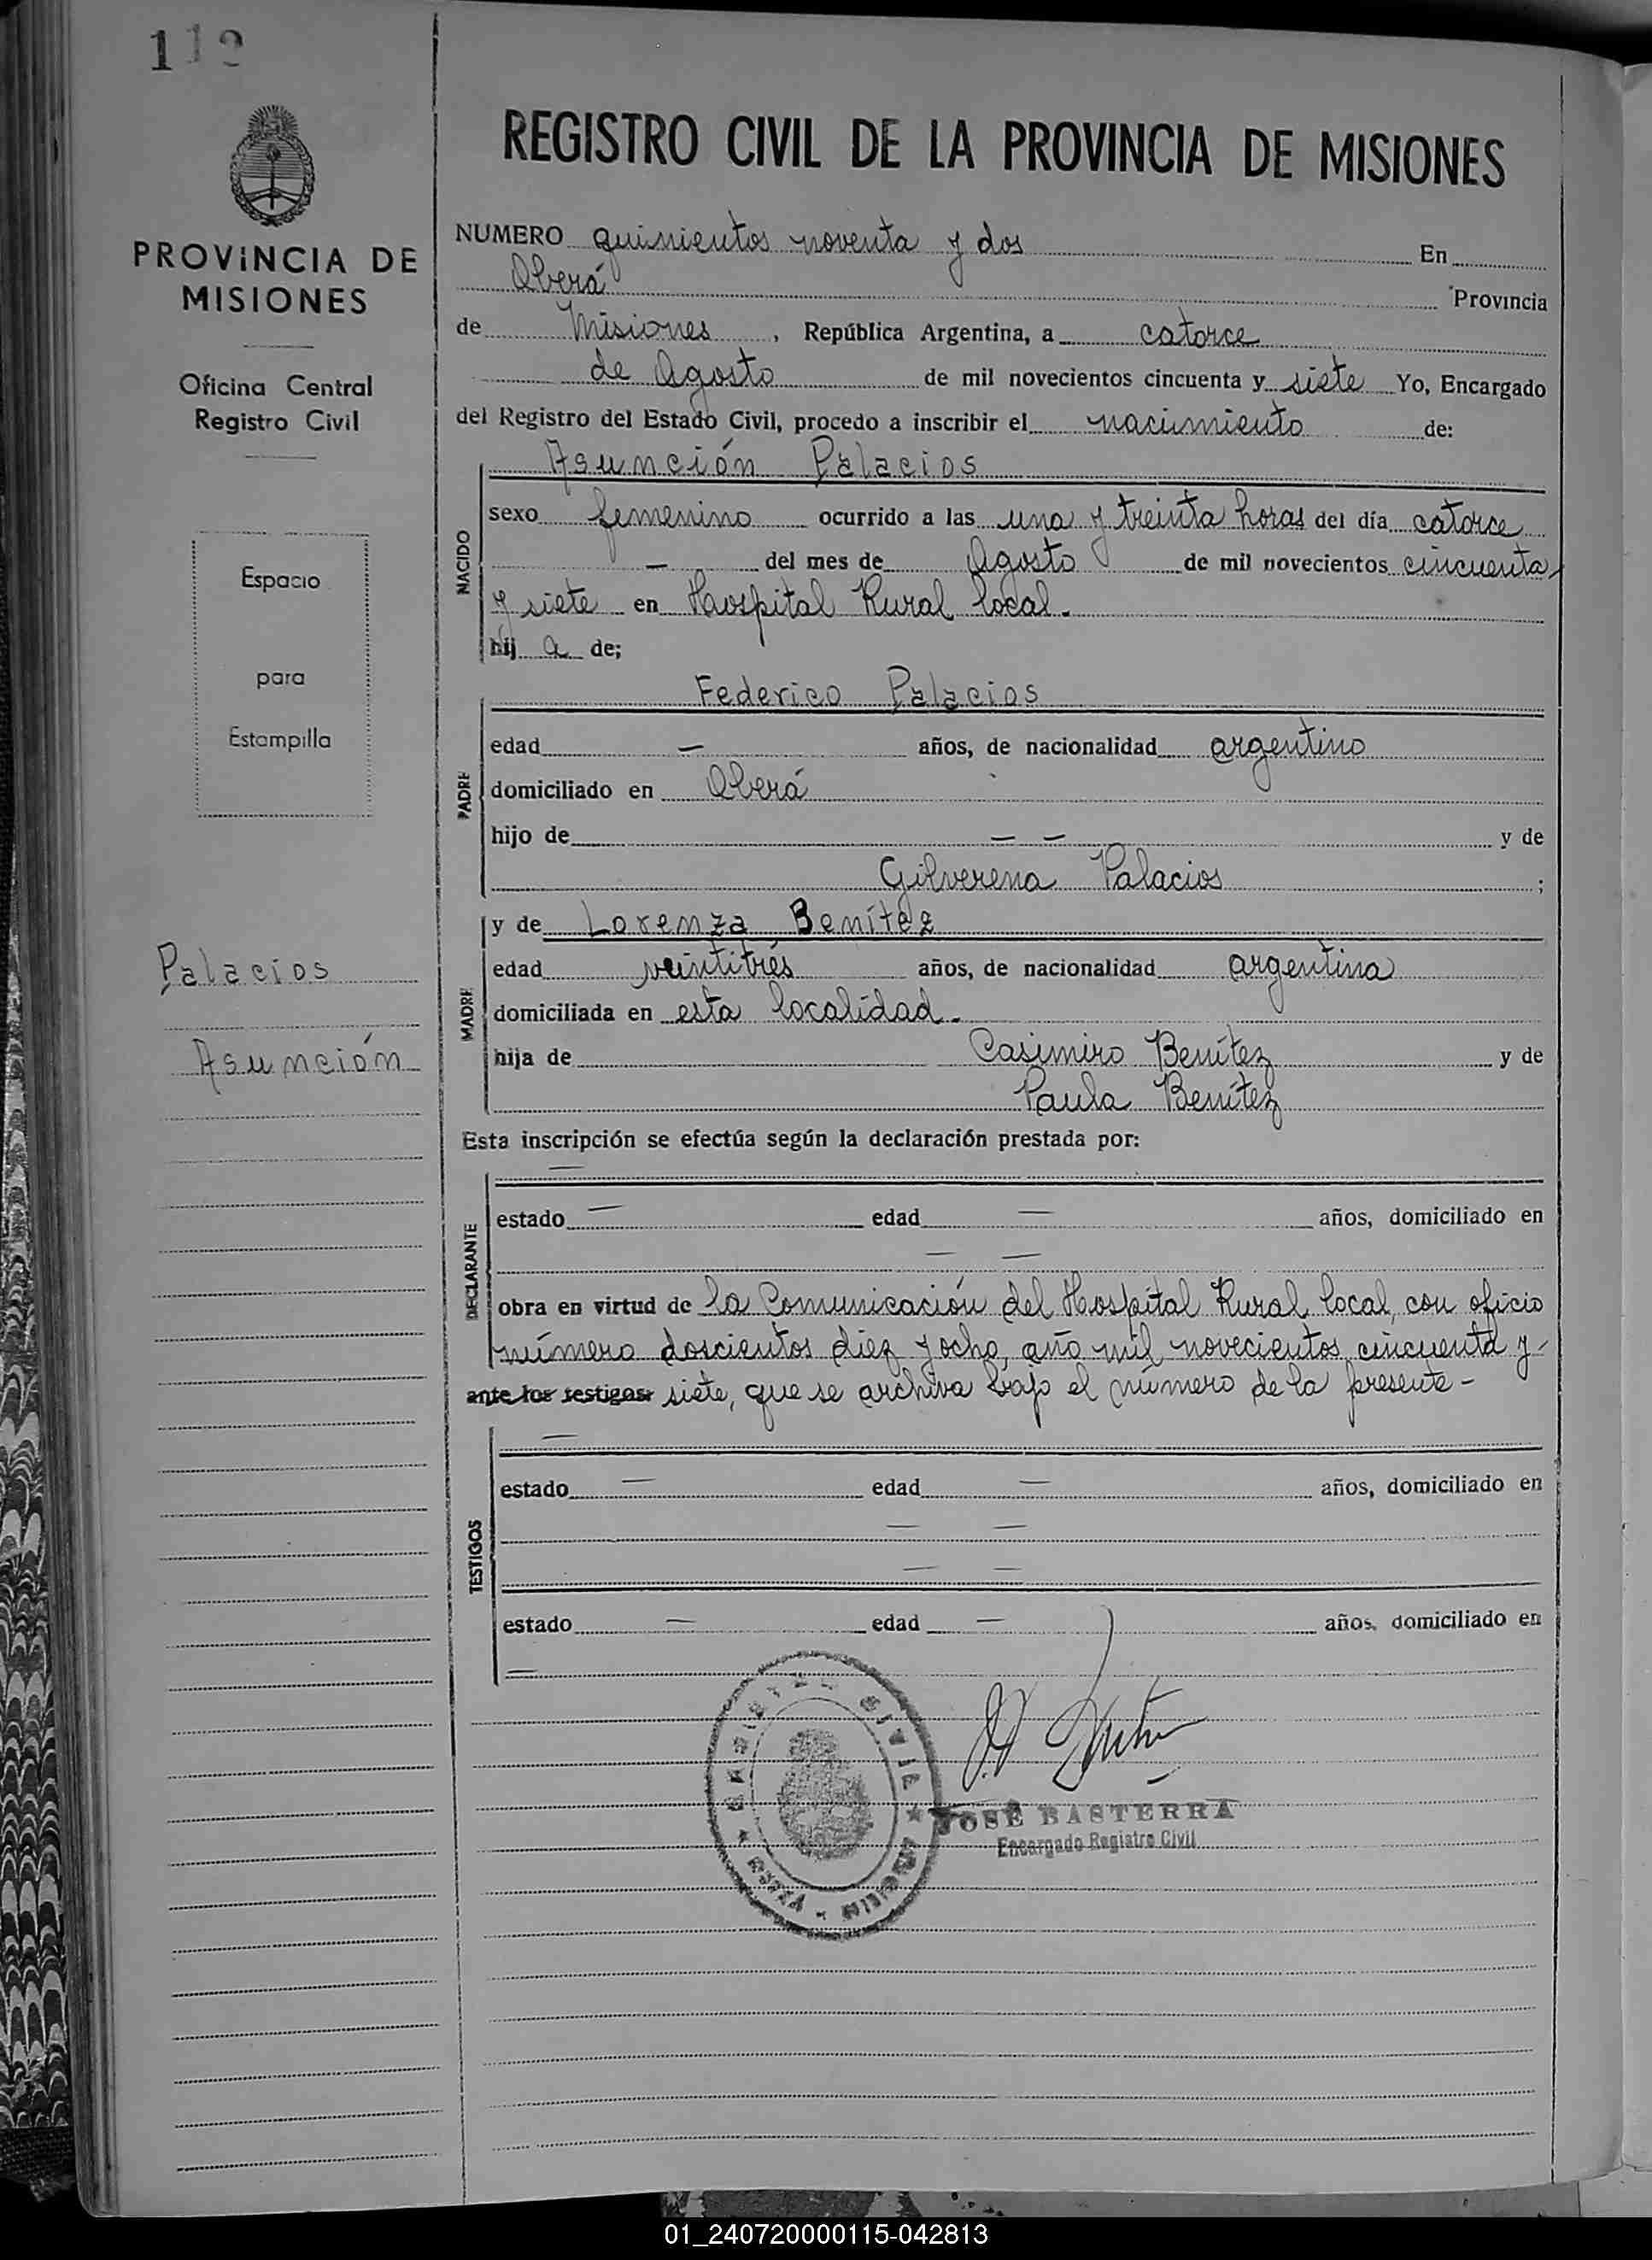 112
PROVINCIA DE
MISIONES
Oficina Central
Registro Civil
Espacio
para
Estampilla
Palacios
Asunción
REGISTRO CIVIL DE LA PROVINCIA DE MISIONES
NUMERO quinientos noventa y dos En
Oberá Provincia
de Misiones, República Argentina, a catorce
de Agosto de mil novecientos cincuenta y siete Yo, Encargado
del Registro del Estado Civil, procedo a inscribir el nacimiento de:
Asunción Palacios
NACIDO
sexo femenino ocurrido a las una y treinta horas del día catorce
— del mes de Agosto de mil novecientos cincuenta
y siete en Hospital Rural local.
hij a de;
Federico Palacios
PADRE
edad — años, de nacionalidad argentino
domiciliado en Oberá
hijo de — — y de
Gilverena Palacios ;
y de Lorenza Benítez
MADRE
edad veintitrés años, de nacionalidad argentina
domiciliada en esta localidad.
hija de Casimiro Benítez y de
Paula Benítez
Esta inscripción se efectúa según la declaración prestada por:
—
DECLARANTE
estado — edad — años, domiciliado en
— —
obra en virtud de la Comunicación del Hospital Rural local, con oficio
número doscientos diez y ocho, año mil novecientos cincuenta y
ante los testigos: siete, que se archiva bajo el número de la presente -
—
TESTIGOS
estado — edad — años, domiciliado en
— —
— —
estado — edad — años, domiciliado en
—
REGISTRO CIVIL
JOSÉ BASTERRA
Encargado Registro Civil
01_240720000115-042813